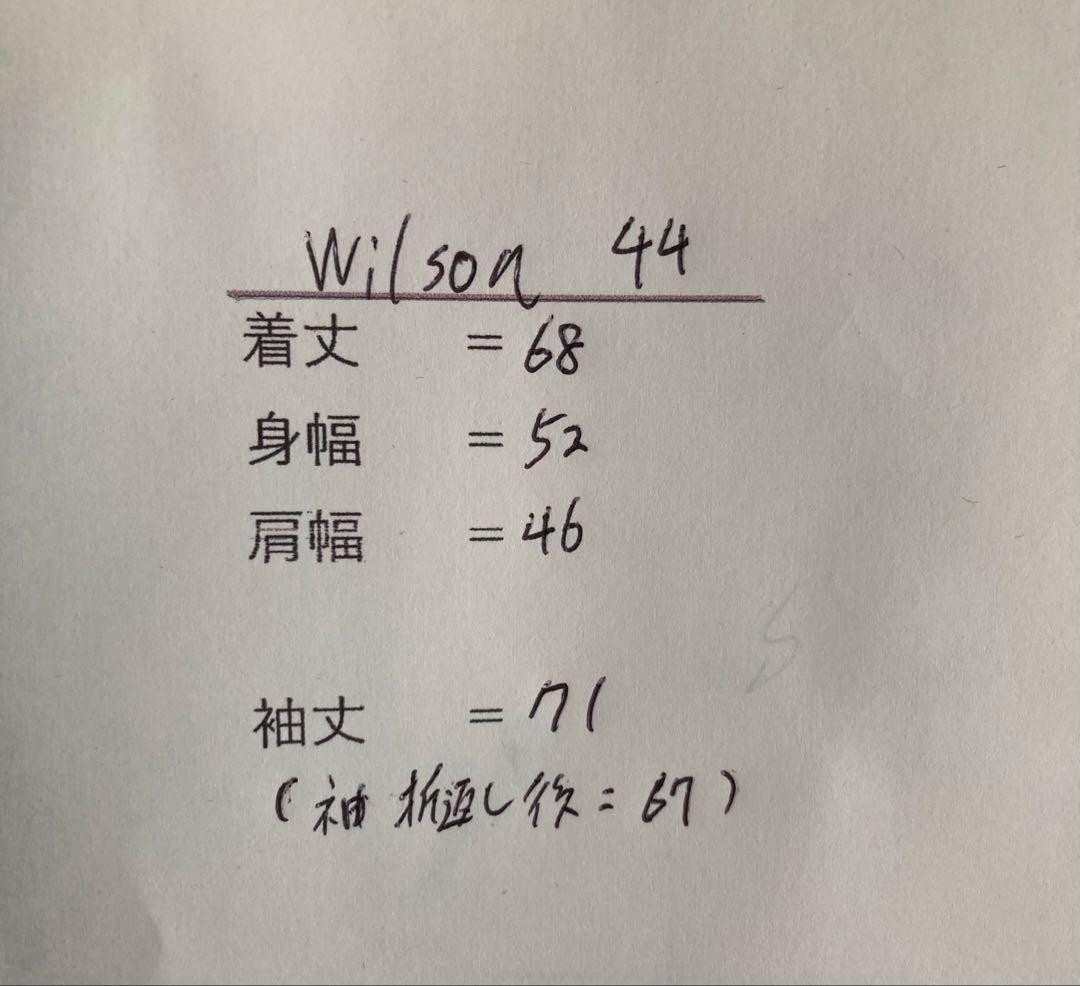 Wilson 44
着丈 = 68
身幅 = 52
肩幅 = 46
袖丈 = 71
(袖 折返し後 = 67)